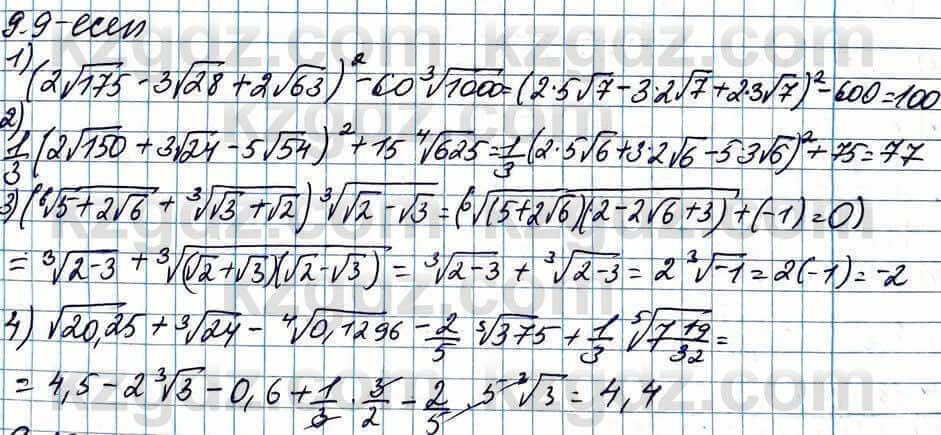 9.9-есеп
1) (2√175 - 3√28 + 2√63)² - 60 ∛1000 = (2·5√7 - 3·2√7 + 2·3√7)² - 600 = 100
2) 1/3 (2√150 + 3√24 - 5√54)² + 15 ∜625 = 1/3 (2·5√6 + 3·2√6 - 5·3√6)² + 75 = 77
3) (⁶√(5+2√6) + ∛(√3+√2)) ∛(√2-√3) = (⁶√((5+2√6)(2-2√6+3)) + (-1) = 0)
= ∛(2-3) + ∛((√2+√3)(√2-√3)) = ∛(2-3) + ∛(2-3) = 2∛-1 = 2(-1) = -2
4) √20,25 + ∛24 - ∜0,1296 - 2/5 ∛375 + 1/3 ⁵√(7 19/32) =
= 4,5 - 2∛3 - 0,6 + 1/3 · 3/2 - 2/5 · 5 ∛3 = 4,4
kzgdz.com